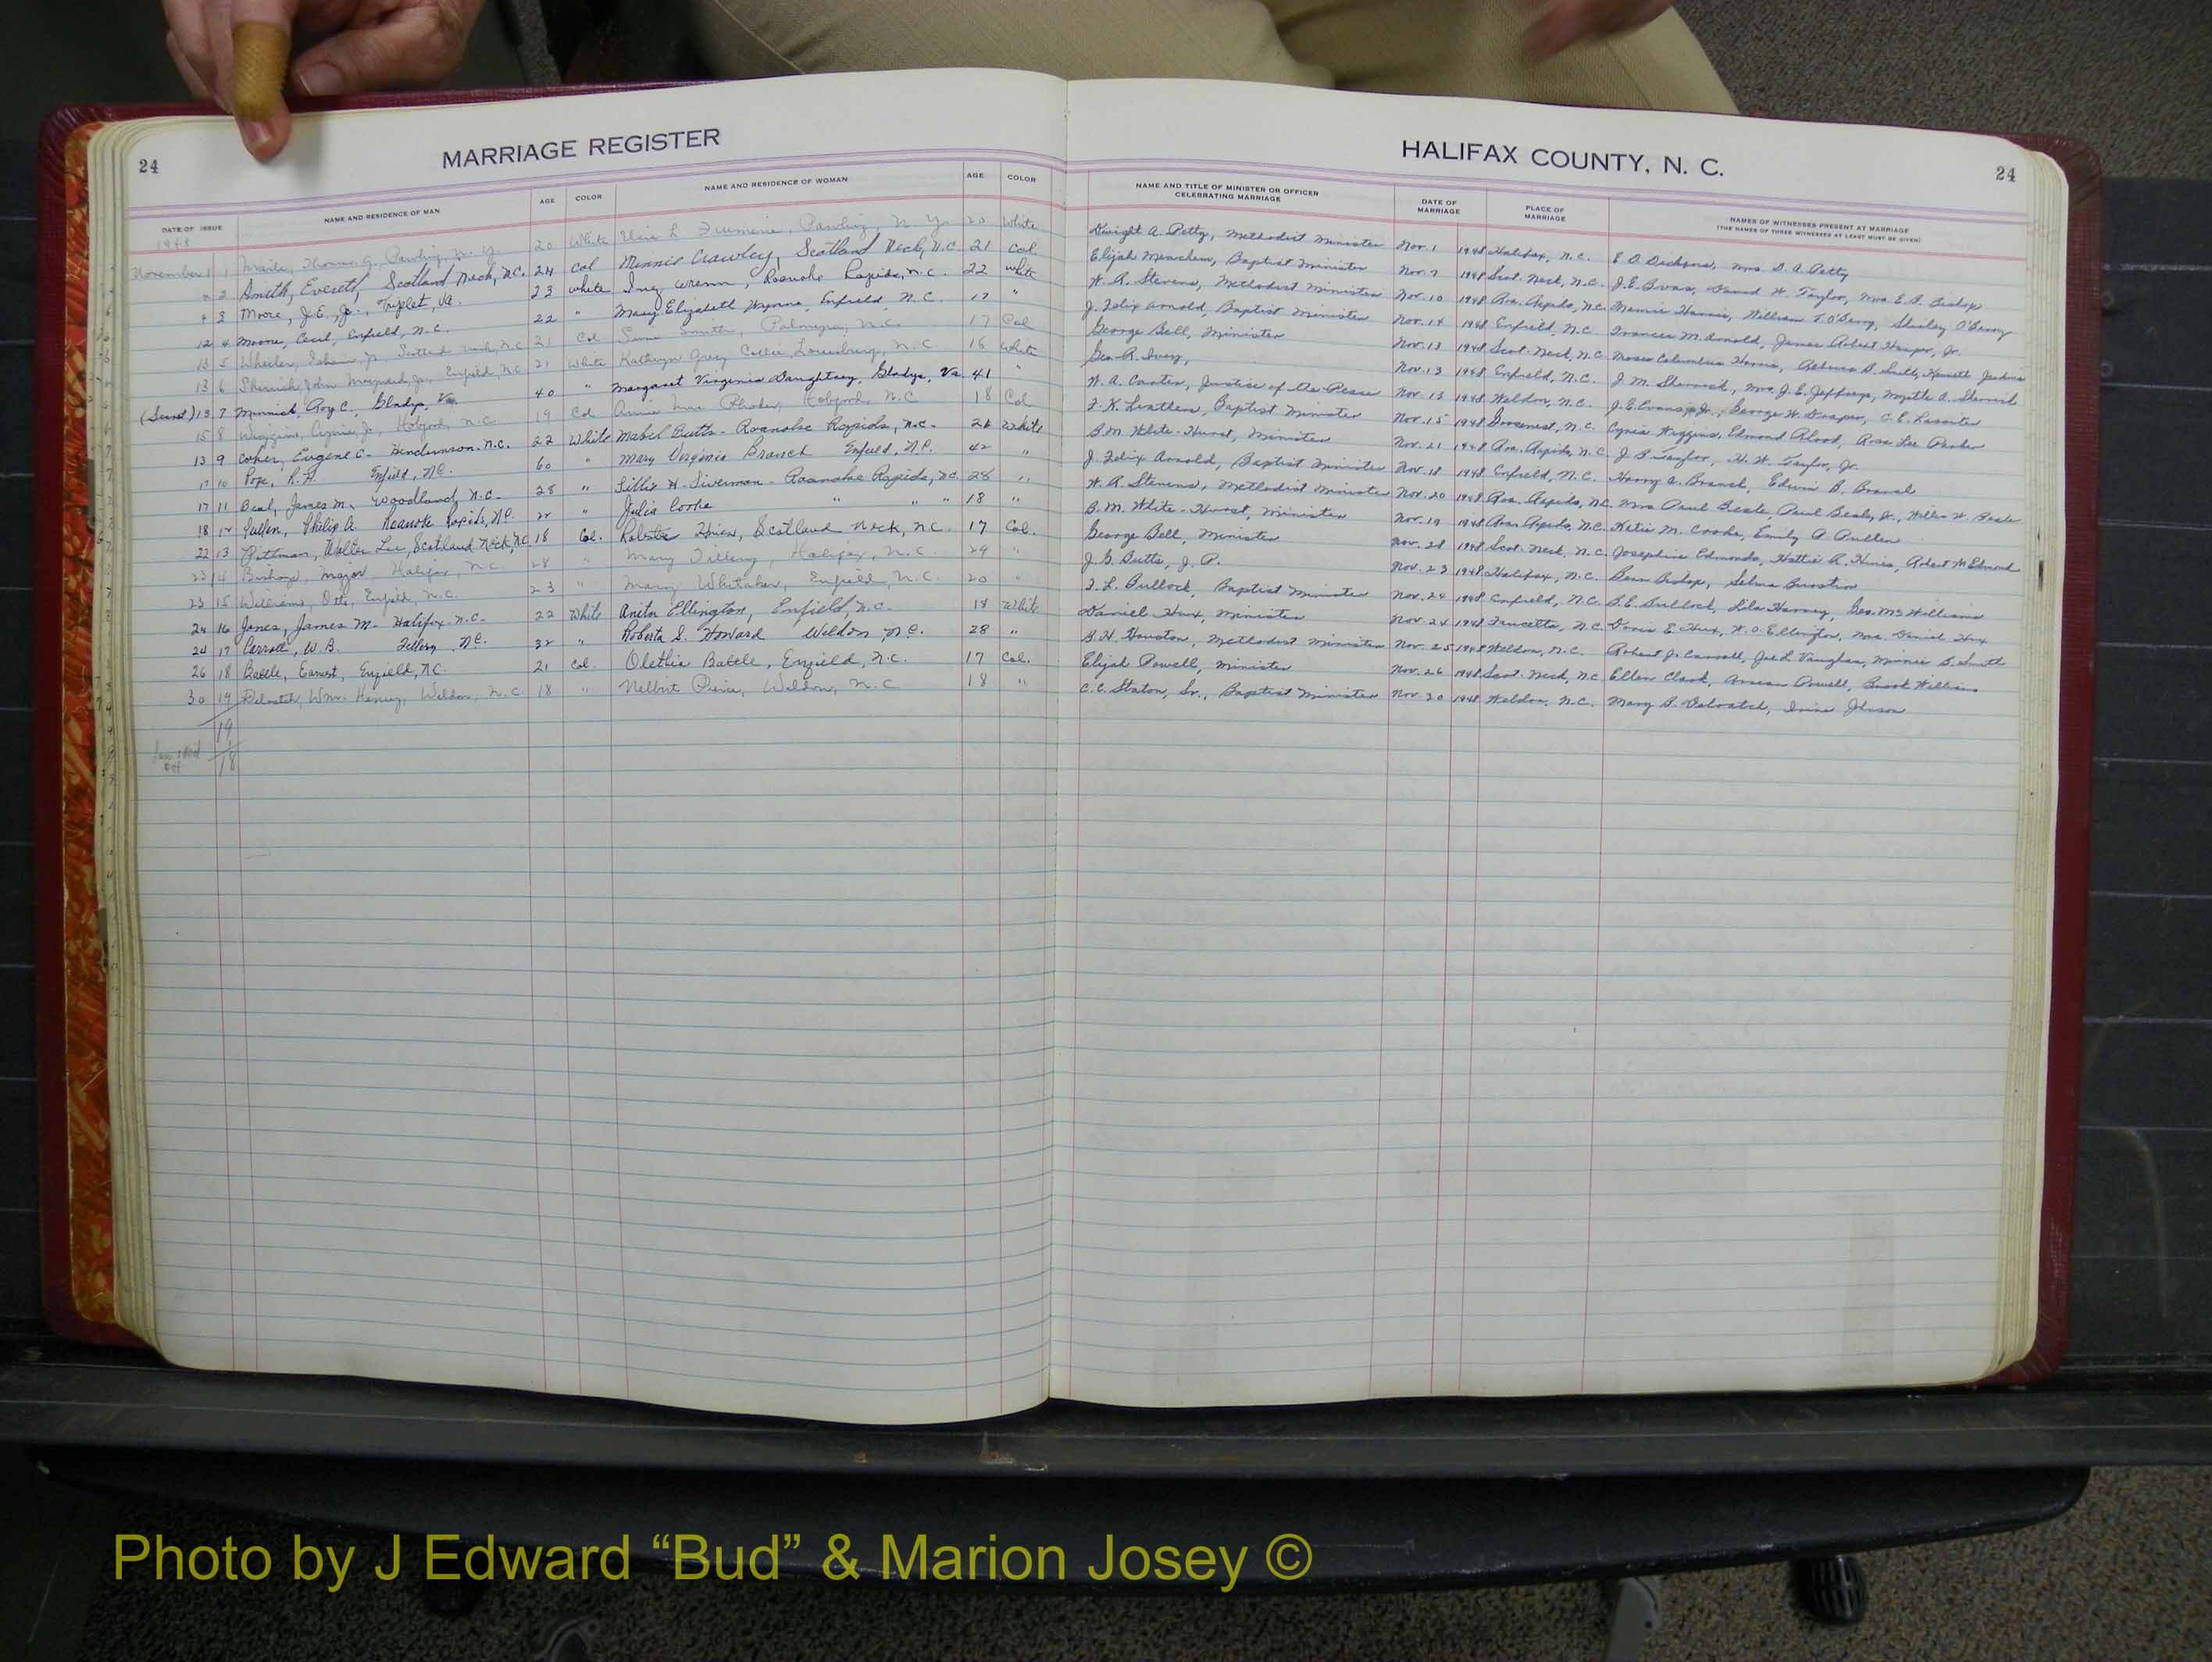 24 MARRIAGE REGISTER HALIFAX COUNTY, N. C. 24
DATE OF ISSUE NAME AND RESIDENCE OF MAN AGE COLOR NAME AND RESIDENCE OF WOMAN AGE COLOR NAME AND TITLE OF MINISTER OR OFFICER CELEBRATING MARRIAGE DATE OF MARRIAGE PLACE OF MARRIAGE NAMES OF WITNESSES PRESENT AT MARRIAGE (THE NAMES OF THREE WITNESSES AT LEAST MUST BE GIVEN)
1948
November 1 1 Thomas G., Pawling, N. Y. 20 White Elsie L. Pawling, N. Y. 20 White Dwight A. Petty, Methodist Minister Nov. 1 1948 Halifax, N. C. E. O. Dickens, Mrs. D. A. Petty
2 Smith, Everett, Scotland Neck, N.C. 24 Col Minnie Crawley, Scotland Neck, N.C. 21 Col. Elijah Meachem, Baptist Minister Nov. 7 1948 Scot. Neck, N. C. J. E. Evans, David W. Taylor, Mrs. E. P. Bishop
3 Moore, J. E., Jr., Triplet, Va. 23 White Wrenn, Roanoke Rapids, N. C. 22 White W. R. Stevens, Methodist Minister Nov. 10 1948 Roa. Rapids, N.C. Mamie Harris, William T. O'Berry, Shirley O'Berry
12 4 Moore, Cecil, Enfield, N. C. 22 " Mary Elizabeth Wynne, Enfield N. C. 17 " J. Felix Arnold, Baptist Minister Nov. 14 1948 Enfield, N. C. Frances M. Arnold, James Robert Harper, Jr.
13 5 Wheeler, Jr., Scotland Neck, N.C. 21 Col. Smith, Palmyra, N. C. 17 Col George Bell, Minister Nov. 13 1948 Scot. Neck, N. C. Moses Columbus Harris, Rebecca B. Smith, Kenneth Jenkins
13 6 Sherrick, John Maynard, Jr., Enfield, N.C. 21 White Kathryn Grey Collie, Louisburg, N. C. 16 White Geo. R. Ivey, Nov. 13 1948 Enfield, N. C. J. M. Mrs. J. E. Jeffreys, Myrtle A.
13 7 Minnick, Roy C., Gladys, Va. 40 " Margaret Virginia Daughtrey, Gladys, Va. 41 W. A. Carter, Justice of the Peace Nov. 13 1948 Weldon, N. C. J. E. Evans, Jr., George W. Draper, C. E. Lassiter
15 8 Wiggins, Jr., Hobgood, N. C. 19 Col Annie Mae Hobgood, N. C. 18 Col. Baptist Minister Nov. 15 1948 N. C. Wiggins, Edmond Rose Lee Parker
13 9 Coker, Eugene C. Henderson, N.C. 22 White Mabel Butts - Roanoke Rapids, N.C. 21 White B. M. White-Hurst, Minister Nov. 21 1948 Roa. Rapids, N. C. J. B. Taylor, H. W. Taylor, Jr.
17 10 Pope, R. H. Enfield, N.C. 60 " Mary Virginia Branch Enfield, N.C. 42 " J. Felix Arnold, Baptist Minister Nov. 18 1948 Enfield, N. C. Harry A. Branch, Edwin B. Branch
17 11 Beal, James M., Woodland, N. C. 28 " Lillie H. Liverman - Roanoke Rapids, N.C. 28 " W. R. Stevens, Methodist Minister Nov. 20 1948 Roa. Rapids, N.C. Mrs. Paul Beale, Paul Beale, Jr., Helen W. Beale
18 12 Pullen, Philip A. Roanoke Rapids, N.C. 22 " Julia Cooke " " " 18 " B. M. White-Hurst, Minister Nov. 19 1948 Roa. Rapids, N. C. Katie M. Cooke, Emily A. Pullen
22 13 Pittman, Walter Lee, Scotland Neck, N.C. 18 Col. Roberta Hines, Scotland Neck, N. C. 17 Col. George Bell, Minister Nov. 28 1948 Scot. Neck, N. C. Josephine Edmonds, Hattie R. Hines, Robert H. Edmond
23 14 Bishop, Major, Halifax, N.C. 28 " Mary Tillery, Halifax, N. C. 29 " J. G. Butts, J. P. Nov. 23 1948 Halifax, N. C. Bishop, Selma
23 15 Williams, Otto, Enfield, N.C. 23 " Mary Whitaker, Enfield, N. C. 20 " L. Bullock, Baptist Minister Nov. 24 1948 Enfield, N. C. B. E. Bullock, Lila Harvey, Geo. McWilliams
24 16 Jones, James M. Halifax N.C. 22 White Anita Ellington, Enfield, N.C. 18 White Daniel Hux, Minister Nov. 24 1948 Faucetts, N. C. Doris E. Hux, W. O. Ellington, Mrs. Daniel Hux
24 17 Carroll, W. B. Tillery N.C. 32 " Roberta S. Howard Weldon, N.C. 28 " B. H. Houston, Methodist Minister Nov. 25 1948 Weldon, N. C. Robert J. Carroll, Joe L. Vaughan, Minnie S. Smith
26 18 Battle, Earnest, Enfield, N.C. 21 Col. Olethia Battle, Enfield, N.C. 17 Col. Elijah Powell, Minister Nov. 26 1948 Scot. Neck, N.C. Ellen Clark, Powell, Brook Williams
30 19 Deloatch, Wm. Henry, Weldon, N. C. 18 " Pierce, Weldon, N. C. 18 " C. C. Staton, Sr., Baptist Minister Nov. 30 1948 Weldon, N. C. Mary B. Deloatch, Johnson
19
18
Photo by J Edward “Bud” & Marion Josey ©